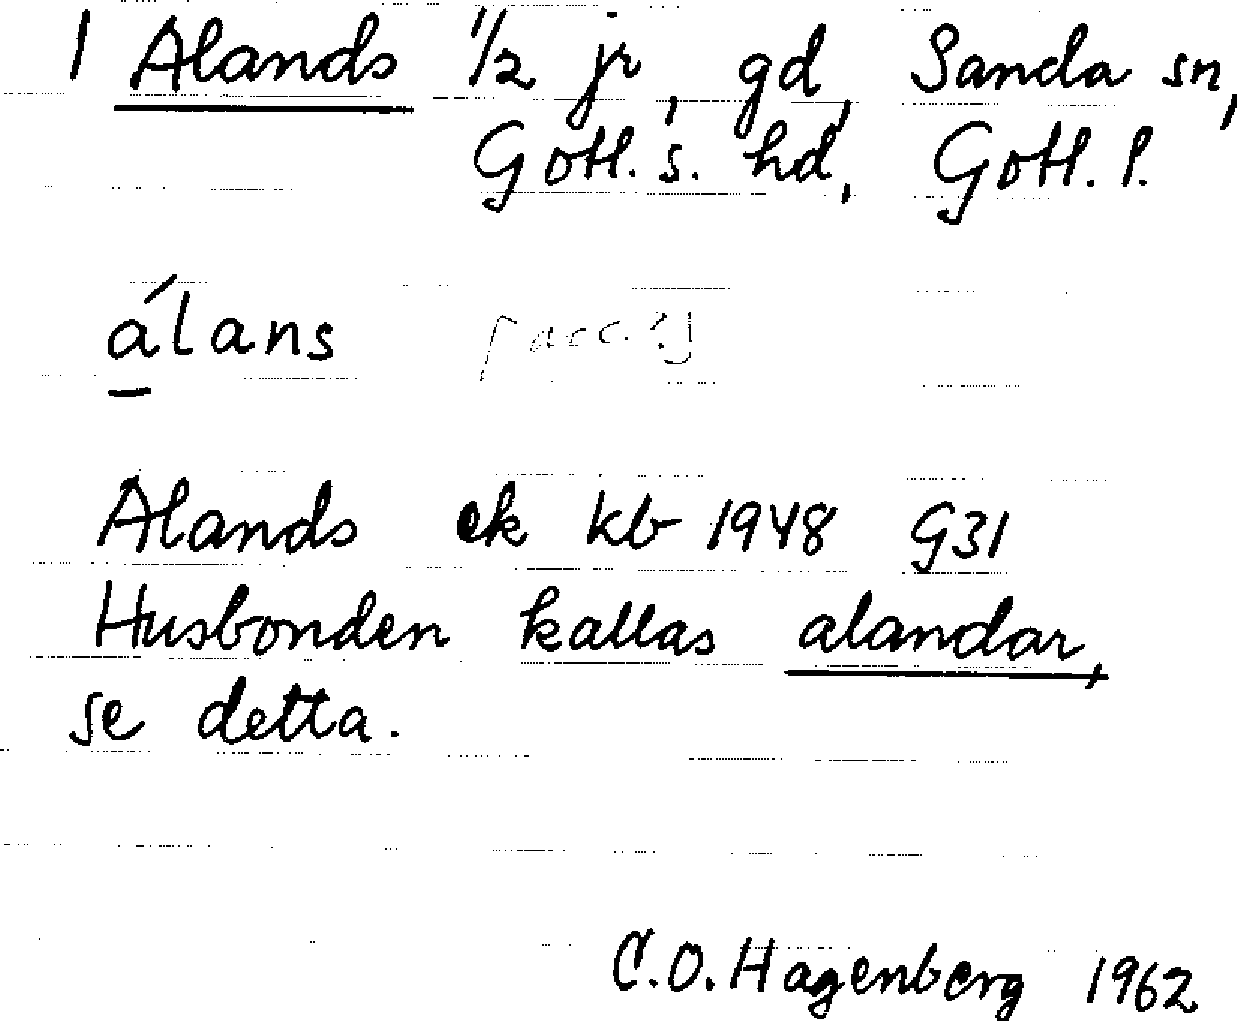 1 Alands 1/2 jr, gd, Sanda sn,
Gotl. s. hd, Gotl. l.
álans [acc.?]
Alands ek kb 1948 G31
Husbonden kallas alandar,
se detta.
C.O. Hagenberg 1962